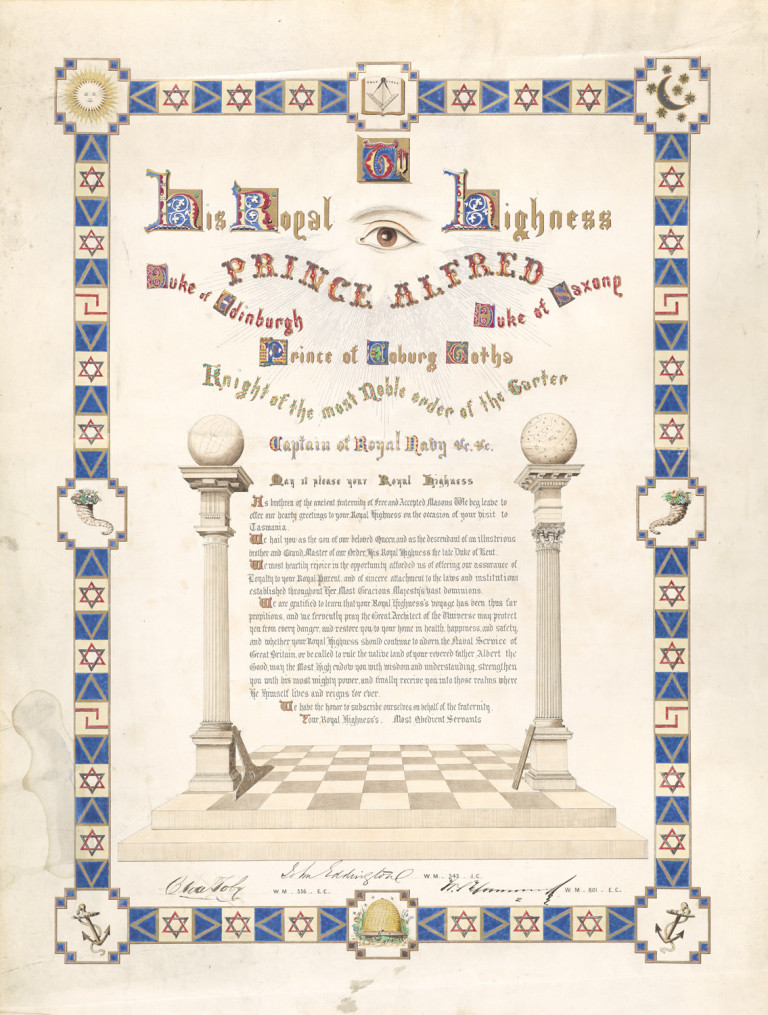 To
His Royal Highness
PRINCE ALFRED
Duke of Edinburgh
Duke of Saxony
Prince of Coburg Gotha
Knight of the most Noble order of the Garter
Captain of Royal Navy &c. &c.
May it please your Royal Highness
As brethren of the ancient fraternity of Free and Accepted Masons We beg leave to
offer our hearty greetings to your Royal Highness on the occasion of your visit to
Tasmania.
We hail you as the son of our beloved Queen, and as the descendant of an illustrious
brother and Grand Master of our Order, His Royal Highness the late Duke of Kent.
We most heartily rejoice in the opportunity afforded us of offering our assurance of
Loyalty to your Royal Parent, and of sincere attachment to the laws and institutions
established throughout Her Most Gracious Majesty's vast dominions.
We are gratified to learn that your Royal Highness's voyage has been thus far
propitious, and we fervently pray the Great Architect of the Universe may protect
you from every danger, and restore you to your home in health, happiness, and safety,
and whether your Royal Highness should continue to adorn the Naval Service of
Great Britain, or be called to rule the native land of your revered father Albert the
Good, may the Most High endow you with wisdom and understanding, strengthen
you with his most mighty power, and finally receive you into those realms where
He Himself lives and reigns for ever.
We have the honor to subscribe ourselves on behalf of the fraternity.
Your, Royal Highness's. Most Obedient Servants
John Eddington W. M. 345 . J.C.
Chas Toby W. M. 536 . E.C.
W. M. 801 . E.C.